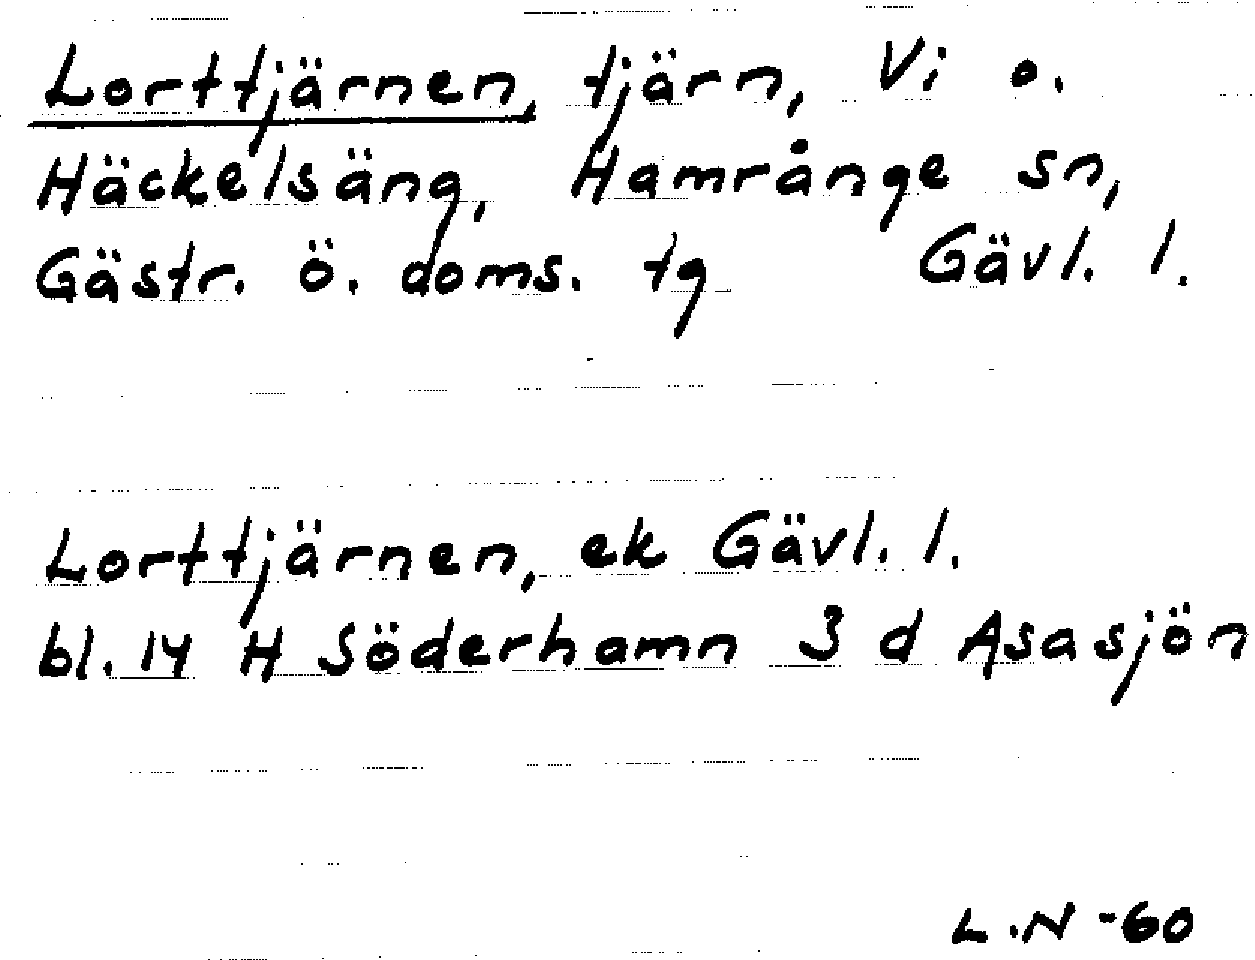 Lorttjärnen, tjärn, Vi o.
Häckelsäng, Hamrånge sn,
Gästr. ö. doms. tg Gävl. l.
Lorttjärnen, ek Gävl. l.
bl. 14 H Söderhamn 3 d Asasjön
L.N -60